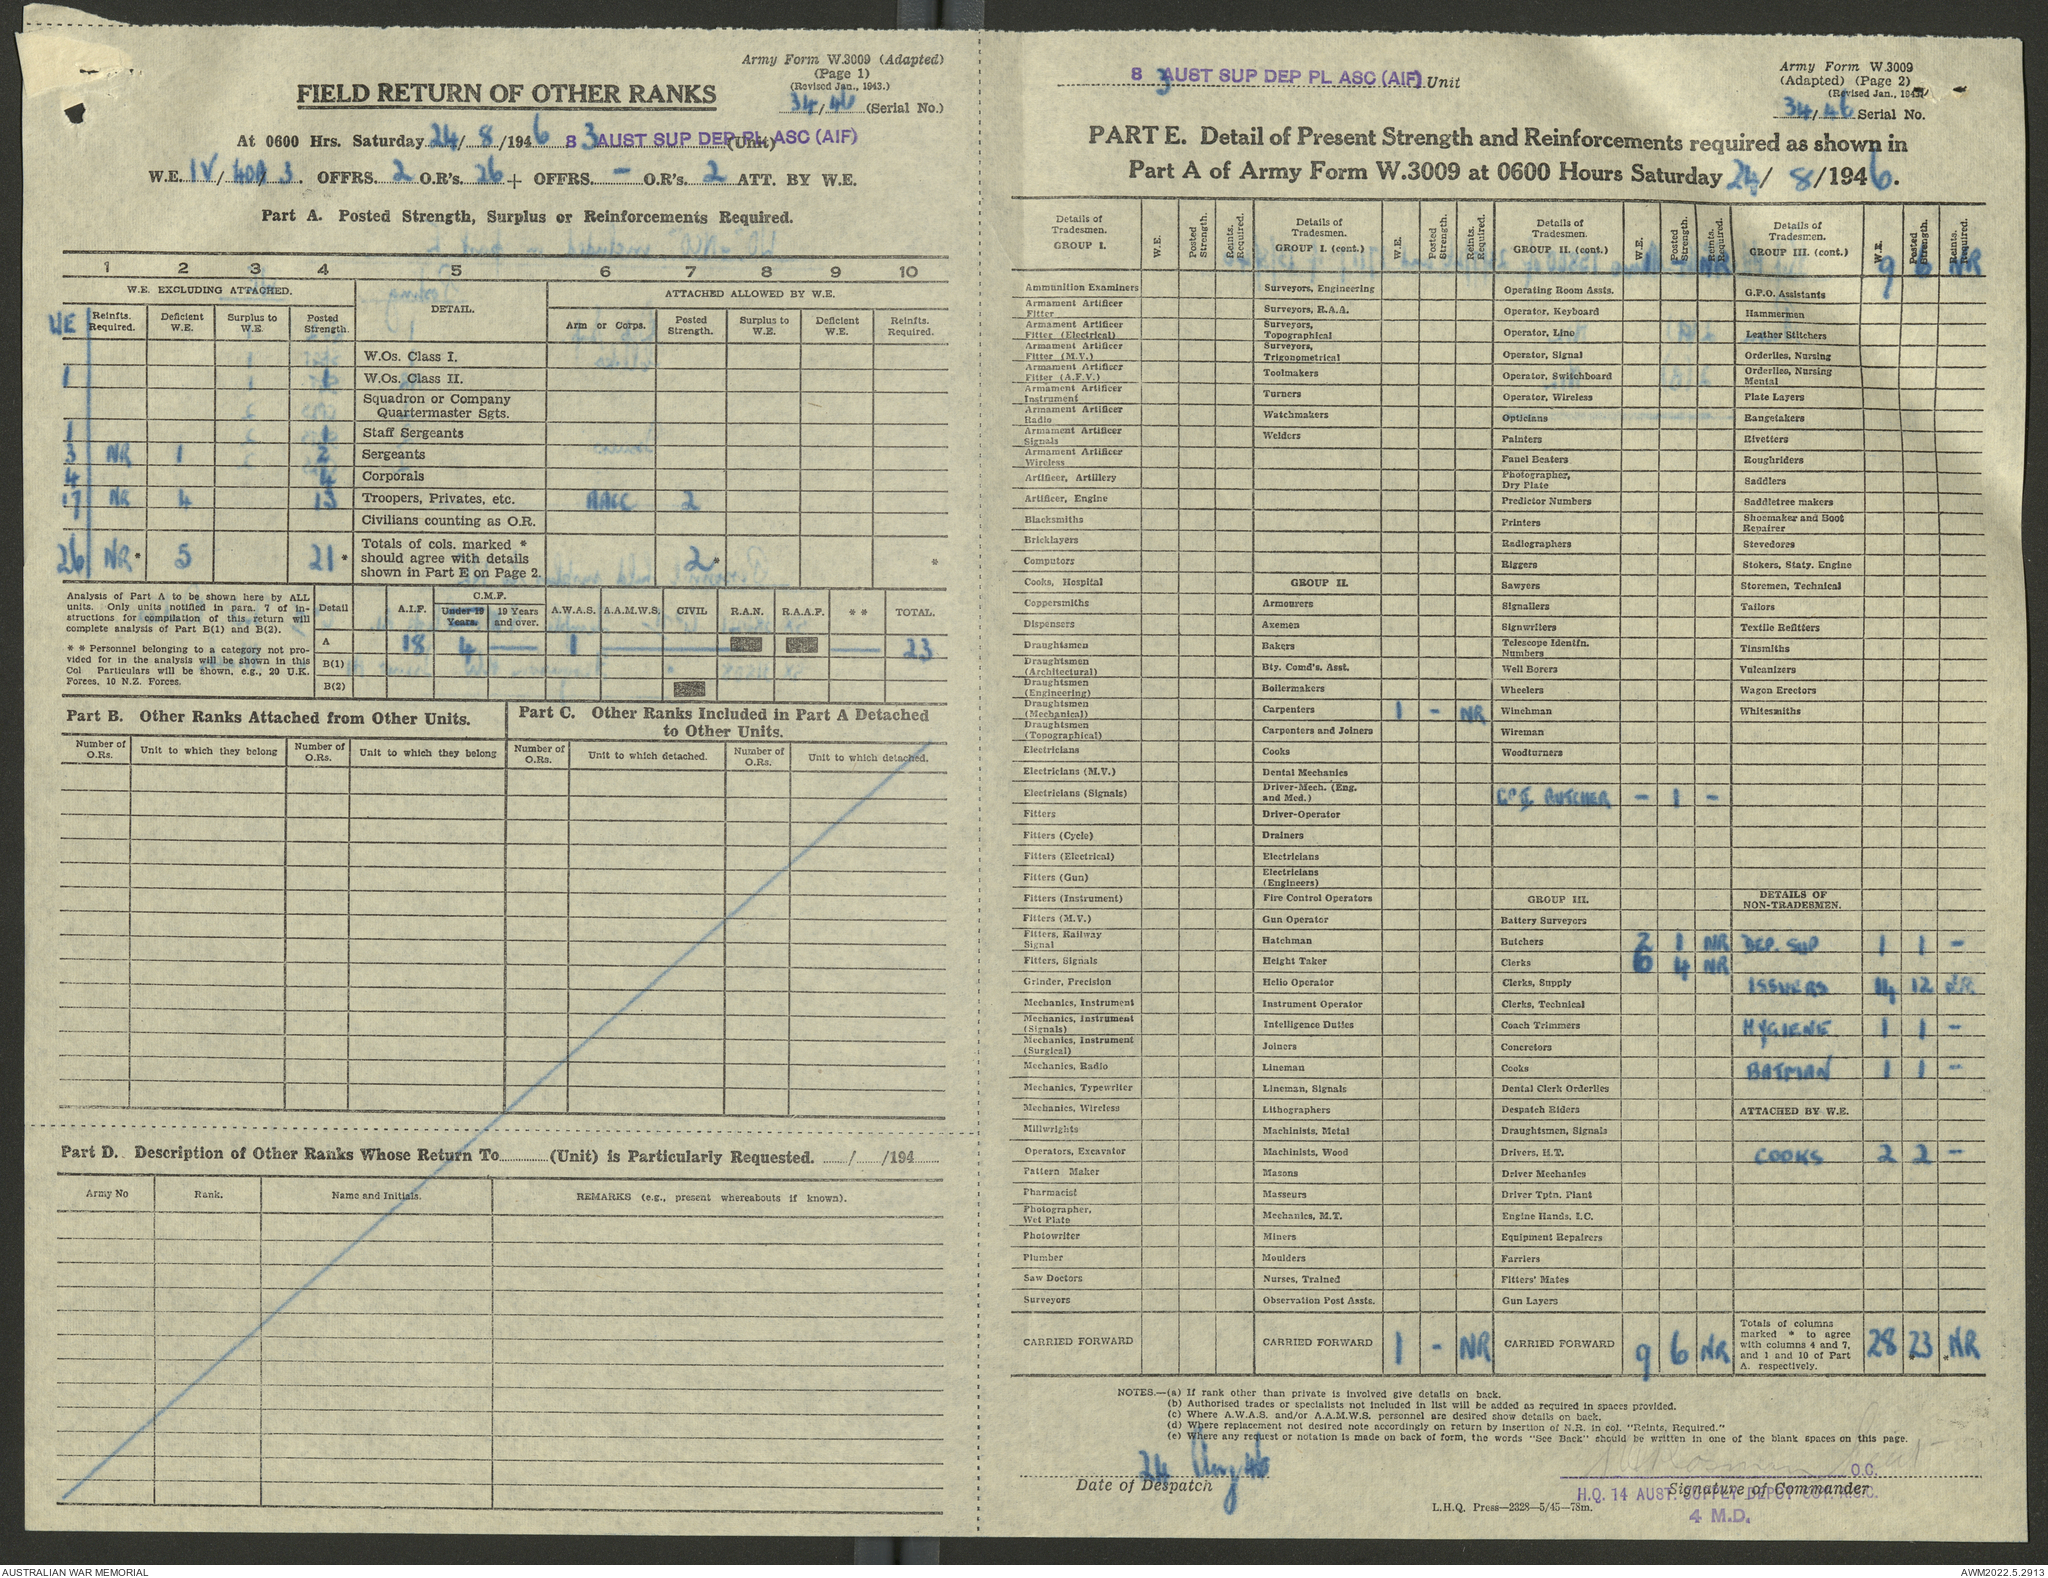 Army Form W.3009 (Adapted)
(Page 1)
(Revised Jan., 1943.)
34/46 (Serial No.)
FIELD RETURN OF OTHER RANKS
At 0600 Hrs. Saturday 24/8/1946 83 AUST SUP DEP PL ASC (AIF) (Unit)
W.E. IV/ 3. OFFRS. 2 O.R's. 26 + OFFRS. – O.R's. 2 ATT. BY W.E.
Part A. Posted Strength, Surplus or Reinforcements Required.
1 2 3 4 5 6 7 8 9 10
W.E. EXCLUDING ATTACHED. DETAIL. ATTACHED ALLOWED BY W.E.
WE Reinfts. Required. Deficient W.E. Surplus to W.E. Posted Strength. Arm or Corps. Posted Strength. Surplus to W.E. Deficient W.E. Reinfts. Required.
W.Os. Class I.
1 1 W.Os. Class II.
Squadron or Company Quartermaster Sgts.
1 1 Staff Sergeants
3 NR 1 2 Sergeants
4 4 Corporals
17 NR 4 13 Troopers, Privates, etc. AACC 2
Civilians counting as O.R.
26 NR* 5 21* Totals of cols. marked * should agree with details shown in Part E on Page 2. 2* *
Analysis of Part A to be shown here by ALL units. Only units notified in para. 7 of instructions for compilation of this return will complete analysis of Part B(1) and B(2).
* * Personnel belonging to a category not provided for in the analysis will be shown in this Col Particulars will be shown, e.g., 20 U.K. Forces, 10 N.Z. Forces.
Detail A.I.F. C.M.F. Under 19 Years. 19 Years and over. A.W.A.S. A.A.M.W.S. CIVIL R.A.N. R.A.A.F. * * TOTAL.
A 18 4 — 1 — 23
B(1)
B(2)
Part B. Other Ranks Attached from Other Units.
Number of O.Rs. Unit to which they belong Number of O.Rs. Unit to which they belong
Part C. Other Ranks Included in Part A Detached to Other Units.
Number of O.Rs. Unit to which detached. Number of O.Rs. Unit to which detached.
Part D. Description of Other Ranks Whose Return To............(Unit) is Particularly Requested. ....../....../194......
Army No Rank. Name and Initials. REMARKS (e.g., present whereabouts if known).
83 AUST SUP DEP PL ASC (AIF) Unit
Army Form W.3009
(Adapted) (Page 2)
(Revised Jan., 1943.)
34/46 Serial No.
PART E. Detail of Present Strength and Reinforcements required as shown in
Part A of Army Form W.3009 at 0600 Hours Saturday 24/8/1946.
Details of Tradesmen. GROUP I. W.E. Posted Strength. Reints. Required.
Ammunition Examiners
Armament Artificer Fitter
Armament Artificer Fitter (Electrical)
Armament Artificer Fitter (M.V.)
Armament Artificer Fitter (A.F.V.)
Armament Artificer Instrument
Armament Artificer Radio
Armament Artificer Signals
Armament Artificer Wireless
Artificer, Artillery
Artificer, Engine
Blacksmiths
Bricklayers
Computors
Cooks, Hospital
Coppersmiths
Dispensers
Draughtsmen
Draughtsmen (Architectural)
Draughtsmen (Engineering)
Draughtsmen (Mechanical)
Draughtsmen (Topographical)
Electricians
Electricians (M.V.)
Electricians (Signals)
Fitters
Fitters (Cycle)
Fitters (Electrical)
Fitters (Gun)
Fitters (Instrument)
Fitters (M.V.)
Fitters, Railway Signal
Fitters, Signals
Grinder, Precision
Mechanics, Instrument
Mechanics, Instrument (Signals)
Mechanics, Instrument (Surgical)
Mechanics, Radio
Mechanics, Typewriter
Mechanics, Wireless
Millwrights
Operators, Excavator
Pattern Maker
Pharmacist
Photographer, Wet Plate
Photowriter
Plumber
Saw Doctors
Surveyors
CARRIED FORWARD
Details of Tradesmen. GROUP I. (cont.) W.E. Posted Strength. Reints. Required.
Surveyors, Engineering
Surveyors, R.A.A.
Surveyors, Topographical
Surveyors, Trigonometrical
Toolmakers
Turners
Watchmakers
Welders
GROUP II.
Armourers
Axemen
Bakers
Bty. Comd's. Asst.
Boilermakers
Carpenters 1 – NR
Carpenters and Joiners
Cooks
Dental Mechanics
Driver-Mech. (Eng. and Med.)
Driver-Operator
Drainers
Electricians
Electricians (Engineers)
Fire Control Operators
Gun Operator
Hatchman
Height Taker
Helio Operator
Instrument Operator
Intelligence Duties
Joiners
Lineman
Lineman, Signals
Lithographers
Machinists, Metal
Machinists, Wood
Masons
Masseurs
Mechanics, M.T.
Miners
Moulders
Nurses, Trained
Observation Post Assts.
CARRIED FORWARD 1 – NR
Details of Tradesmen. GROUP II. (cont.) W.E. Posted Strength. Reints. Required. 1 – NR
Operating Room Assts.
Operator, Keyboard
Operator, Line
Operator, Signal
Operator, Switchboard
Operator, Wireless
Opticians
Painters
Panel Beaters
Photographer, Dry Plate
Predictor Numbers
Printers
Radiographers
Riggers
Sawyers
Signallers
Signwriters
Telescope Identfn. Numbers
Well Borers
Wheelers
Winchman
Wireman
Woodturners
GP I BUTCHER – 1 –
GROUP III.
Battery Surveyors
Butchers 2 1 NR
Clerks 6 4 NR
Clerks, Supply
Clerks, Technical
Coach Trimmers
Concretors
Cooks
Dental Clerk Orderlies
Despatch Riders
Draughtsmen, Signals
Drivers, H.T.
Driver Mechanics
Driver Tptn. Plant
Engine Hands, I.C.
Equipment Repairers
Farriers
Fitters' Mates
Gun Layers
CARRIED FORWARD 9 6 NR
Details of Tradesmen. GROUP III. (cont.) W.E. Posted Strength. Reints. Required. 9 6 NR
G.P.O. Assistants
Hammermen
Leather Stitchers
Orderlies, Nursing
Orderlies, Nursing Mental
Plate Layers
Rangetakers
Rivetters
Roughriders
Saddlers
Saddletree makers
Shoemaker and Boot Repairer
Stevedores
Stokers, Staty. Engine
Storemen, Technical
Tailors
Textile Refitters
Tinsmiths
Vulcanizers
Wagon Erectors
Whitesmiths
DETAILS OF NON-TRADESMEN.
DEP. SUP 1 1 –
ISSUERS 14 12 NR
HYGIENE 1 1 –
BATMAN 1 1 –
ATTACHED BY W.E.
COOKS 2 2 –
Totals of columns marked * to agree with columns 4 and 7, and 1 and 10 of Part A. respectively. 28 23* *NR
NOTES.—(a) If rank other than private is involved give details on back.
(b) Authorised trades or specialists not included in list will be added as required in spaces provided.
(c) Where A.W.A.S. and/or A.A.M.W.S. personnel are desired show details on back.
(d) Where replacement not desired note accordingly on return by insertion of N.R. in col. "Reints, Required."
(e) Where any request or notation is made on back of form, the words "See Back" should be written in one of the blank spaces on this page.
24 Aug 46
Date of Despatch
O.C.
Signature of Commander
H.Q. 14 AUST. SUPPLY DEPOT COY. A.S.C.
4 M.D.
L.H.Q. Press—2328—5/45—78m.
AUSTRALIAN WAR MEMORIAL
AWM2022.5.2913